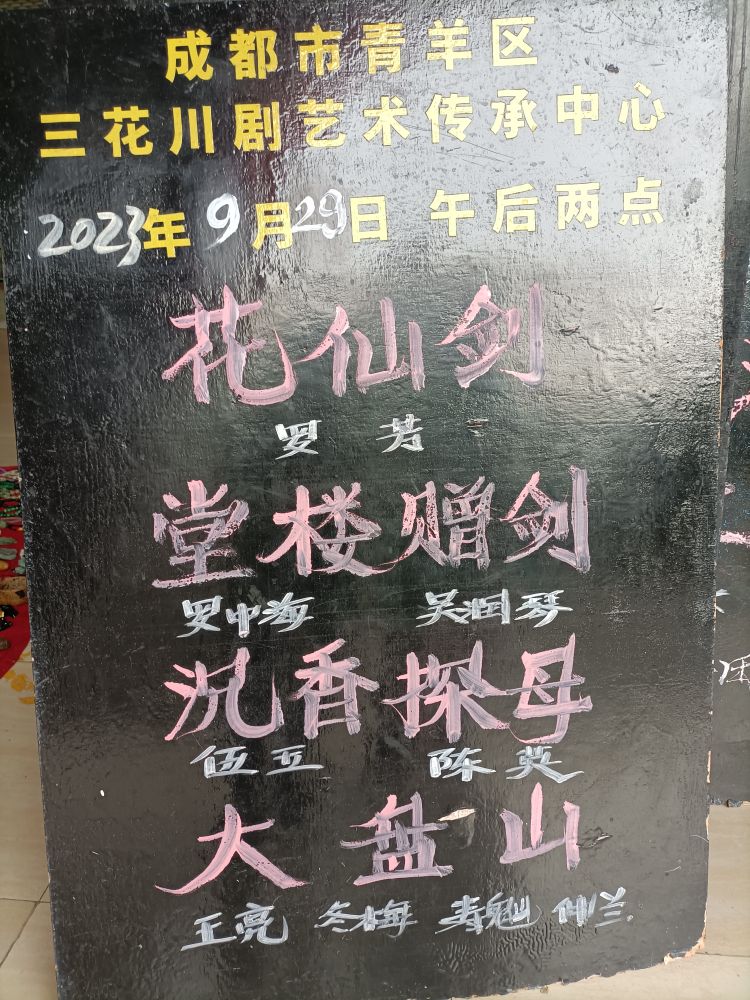 成都市青羊区
三花川剧艺术传承中心
2023年 9月29日 午后两点
花仙剑
罗 芳
堂楼赠剑
罗中海 吴润琴
沉香探母
伍立 陈英
大盘山
王亮 冬梅 寿魁 仲兰